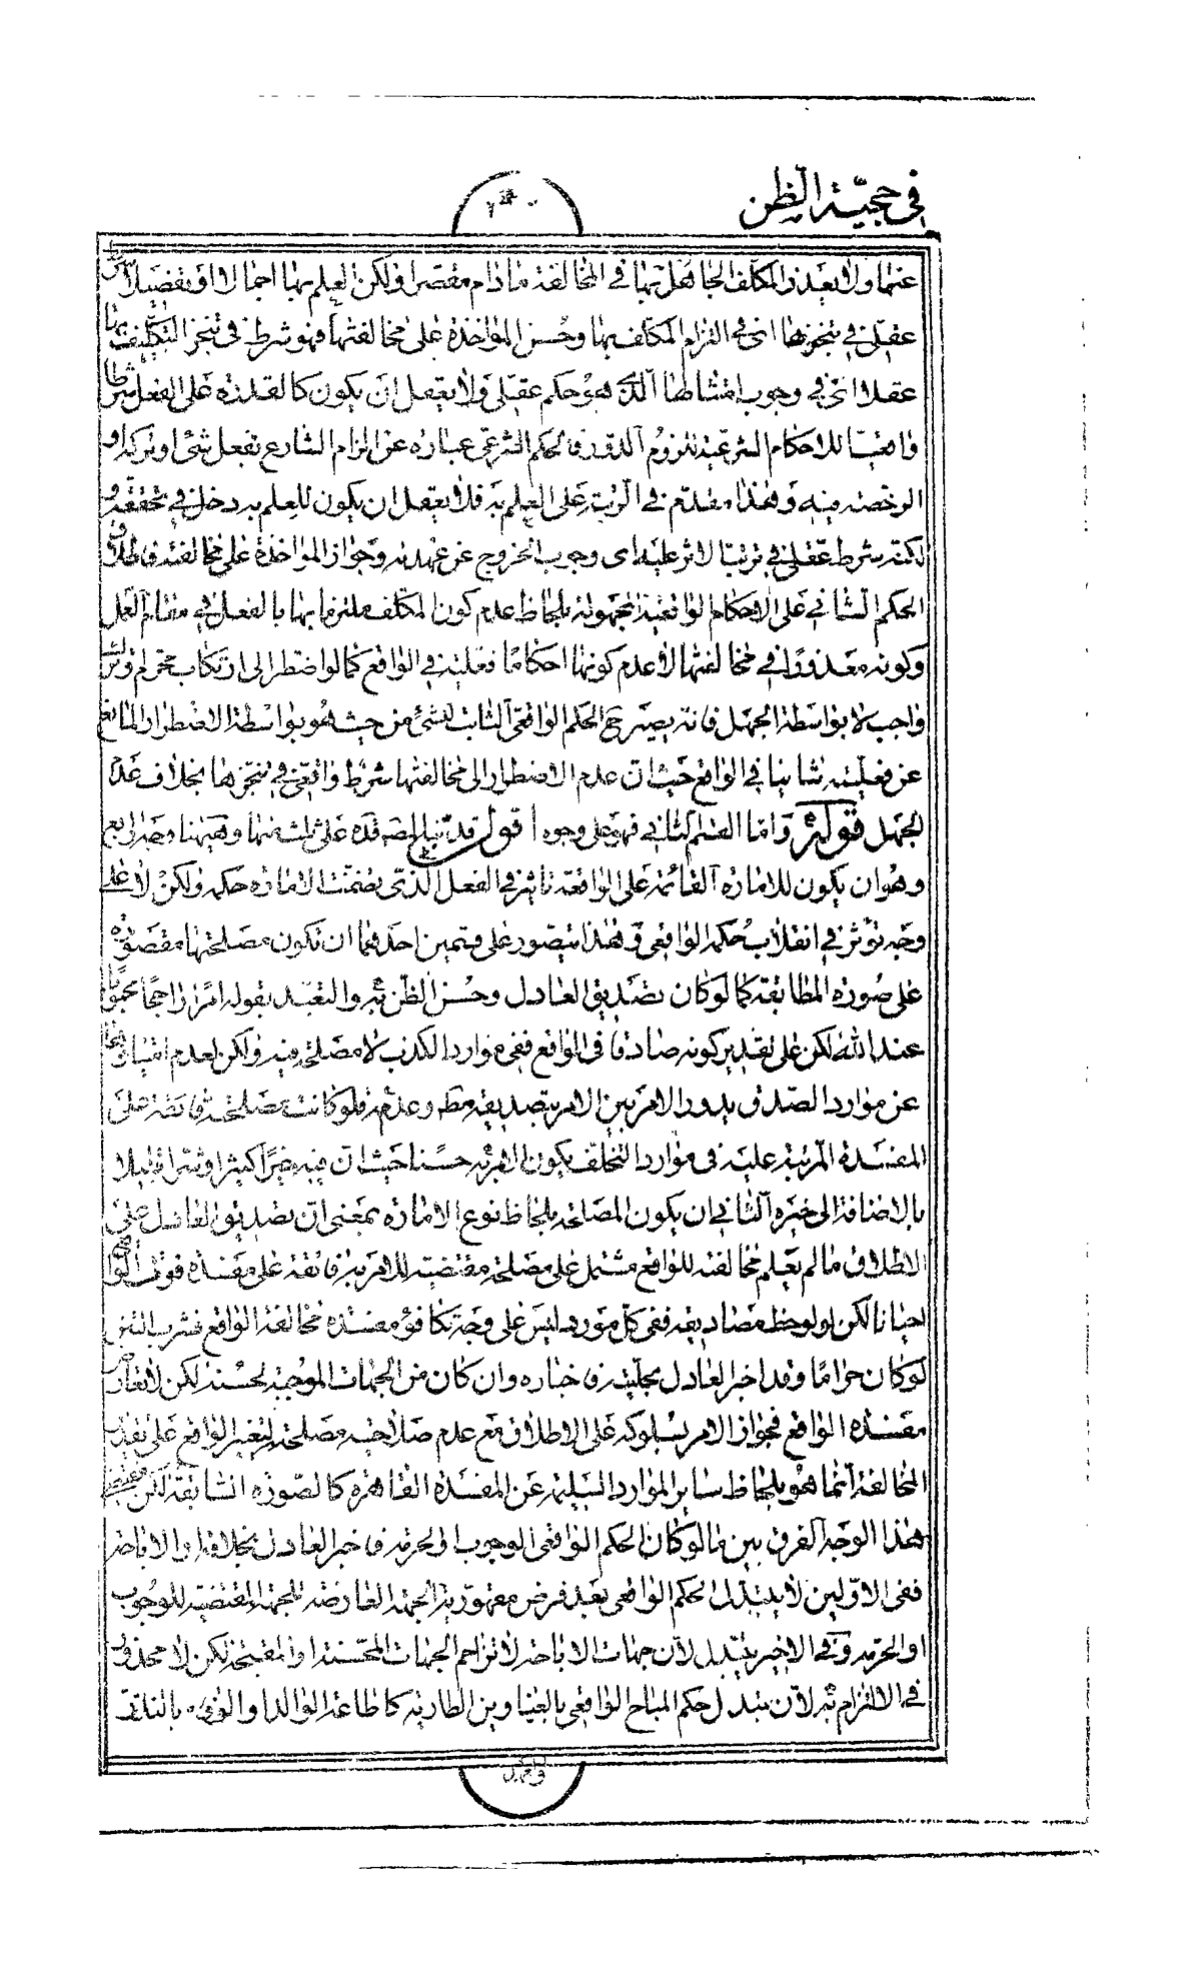 في حجيّة الظن
عنها ولا يعذر المكلف الجاهل بها في المخالفة مادام مقصرا ولكن العلم بها اجمالا او تفصيلا شرط
عقلي في تنجزها اي في التزام المكلف بها وحسن المؤاخذة على مخالفتها فهو شرط في تنجز التكليف بها
عقلا اي في وجوب امتثالها الذي هو حكم عقلي ولا يعقل ان يكون كالقدرة على الفعل شرطا
واقعيا للاحكام الشرعية للزوم الدور فالحكم الشرعي عبارة عن الزام الشارع بفعل شئ او تركه او
الرخصة فيه وهذا مقدم في الرتبة على العلم به فلا يعقل ان يكون للعلم به دخل في تحققه و
لكنه شرط عقلي في ترتب الاثر عليه اي وجوب الخروج عن عهدته وجواز المؤاخذة على مخالفته فاطلاق
الحكم الشاني على الاحكام الواقعية المجهولة بلحاظ عدم كون المكلف ملتزما بها بالفعل في مقام العمل
وكونه معذورا في مخالفتها لا عدم كونها احكاما فعلية في الواقع كما لو اضطر الى ارتكاب محرم او ترك
واجب لا بواسطة الجهل فانه يصير ح الحكم الواقعي الثابت للشئ من حيث هو بواسطة الاضطرار المانع
عن فعليته شانيا في الواقع حيث ان عدم الاضطرار الى مخالفتها شرط واقعي في تنجزها بخلاف عدم
الجهل قوله ره واما القسم الثاني فهو على وجوه اقول قد نبه المص قده على ثلثة منها وههنا وجه رابع
وهو ان يكون للامارة القائمة على الواقعة تاثير في الفعل الذي تضمنت الامارة حكمه ولكن لا على
وجه تؤثر في انقلاب حكمه الواقعي وهذا يتصور على قسمين احدهما ان تكون مصلحتها مقصورة
على صورة المطابقة كما لو كان تصديق العادل وحسن الظن به والتعبد بقوله امرا راجحا محبوبا
عند الله لكن على تقدير كونه صادقا في الواقع ففي موارد الكذب لا مصلحة فيه ولكن لعدم امتيازها
عن موارد الصدق يدور الامر بين الامر بتصديقه مط وعدمه فلو كانت مصلحته فائقة على
المفسدة المرتبة عليه في موارد التخلف يكون الامر به حسنا حيث ان فيه خيرا كثيرا وشرا قليلا
بالاضافة الى خيره الثاني ان يكون المصلحة بلحاظ نوع الامارة بمعنى ان تصديق العادل على
الاطلاق ما لم يعلم مخالفته للواقع مشتمل على مصلحة مقتضية للامر به فائقة على مفسدة فوت الواقع
احيانا لكن لو لوحظ مصاديقه ففي كل مورد ليس على وجه تكافؤ مفسدة مخالفة الواقع فشرب التتن
لو كان حراما وقد اخبر العادل بحليته فاخباره وان كان من الجهات الموجبة لحسنه لكن لا تعارض
مفسدة الواقع فجواز الامر بسلوكه على الاطلاق مع عدم صلاحية مصلحته لتغيير الواقع على تقدير
المخالفة انما هو بلحاظ سائر الموارد السليمة عن المفسدة القاهرة كالصورة السابقة لكن مقتضى
هذا الوجه الفرق بين ما لو كان الحكم الواقعي الوجوب او الحرمة فاخبر العادل بخلافه او الاباحة
ففي الاولين لا يتبدل الحكم الواقعي بعد فرض مقهورية الجهة العارضة للجهة المقتضية للوجوب
او الحرمة وفي الاخير يتبدل لان جهات الاباحة لا تزاحم الجهات المحسنة او المقبحة لكن لا محذور
في الالتزام به لان تبدل حكم المباح الواقعي بالعناوين الطارية كاطاعة الوالد او الوفاء بالنذر